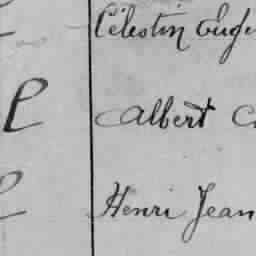 Célestin Eug
P Albert
Henri Jean